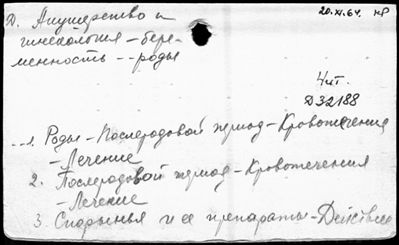 20.XI.64. нР
Д. Акушерство и
гинекология – бере-
менность -- роды
4 чт.
Д32188
1. Роды – Послеродовой период – Кровотечения
– Лечение
2. Послеродовой период – Кровотечения
– Лечение
3. Спорынья и ее препараты – Действие